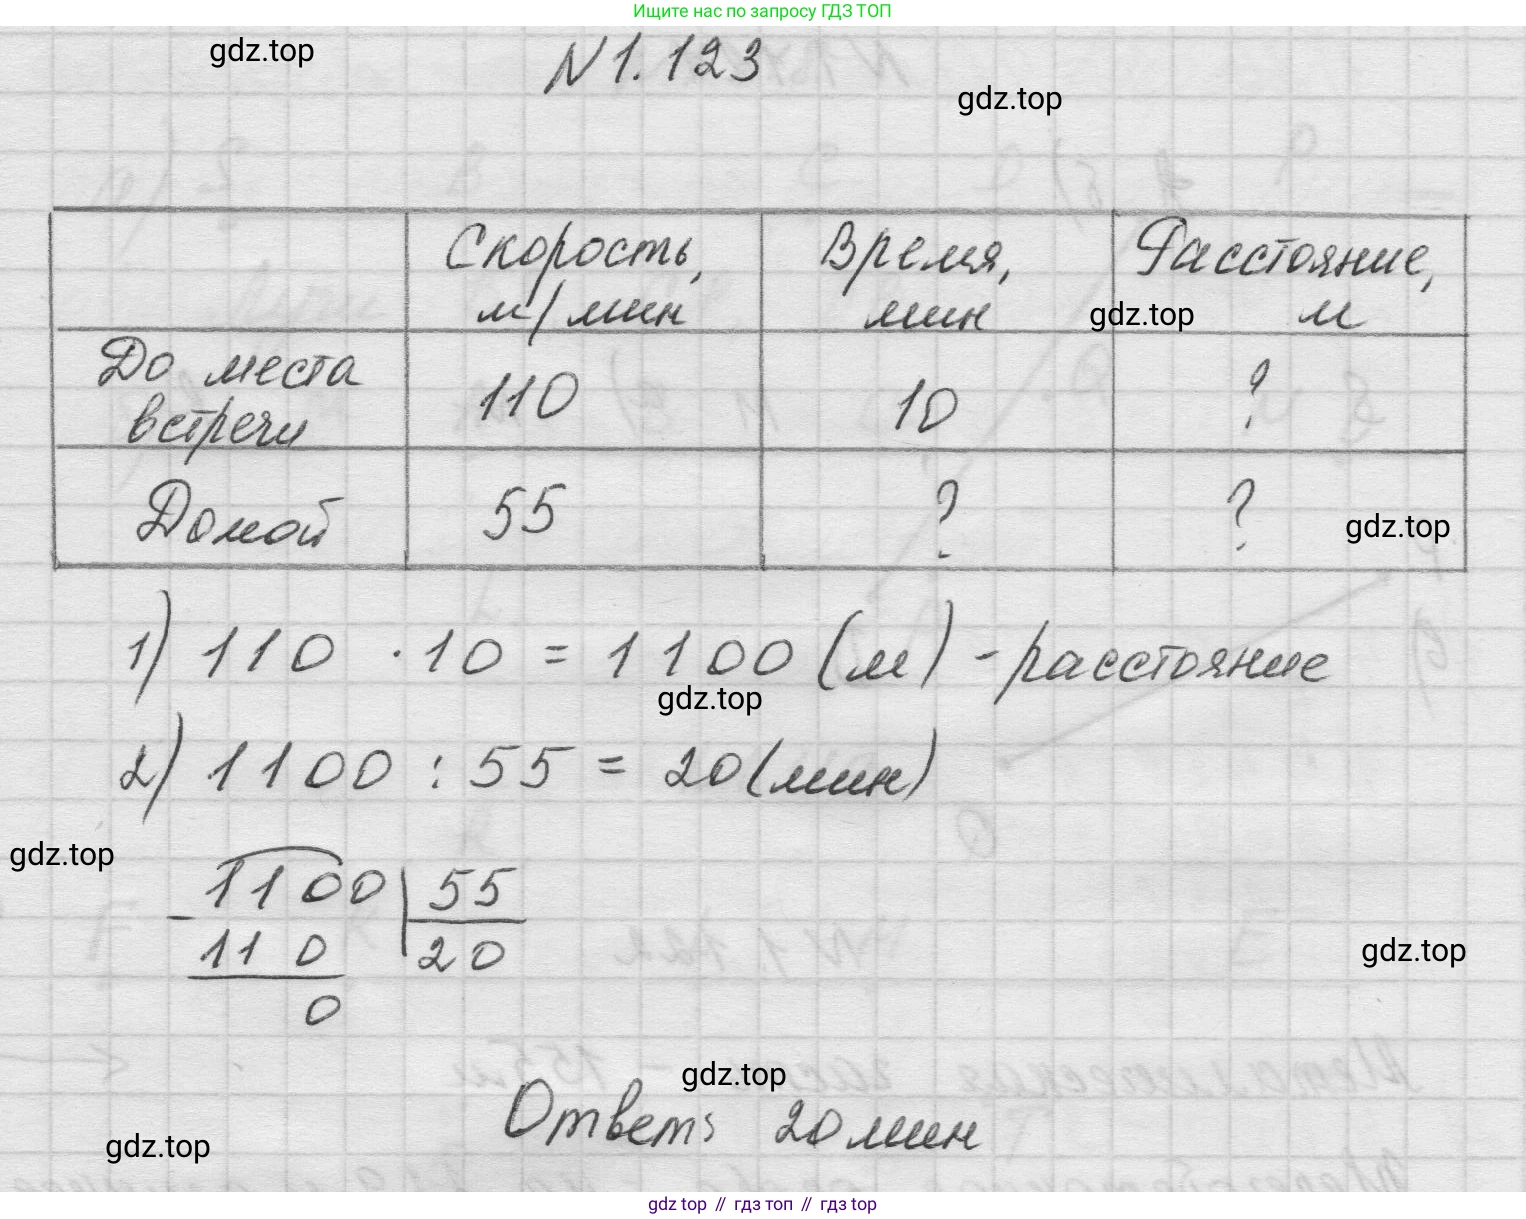 Ищите нас по запросу ГДЗ ТОП
gdz.top
N1.123
gdz.top
Скорость, м/мин
Время, мин
Расстояние, м
gdz.top
До места встречи
110
10
?
Домой
55
?
?
gdz.top
1) 110 · 10 = 1100 (м) - расстояние
gdz.top
2) 1100 : 55 = 20 (мин)
gdz.top
1100 | 55
- 110 | 20
0
gdz.top
gdz.top
Ответ: 20 мин
gdz.top
gdz.top // гдз топ // gdz.top